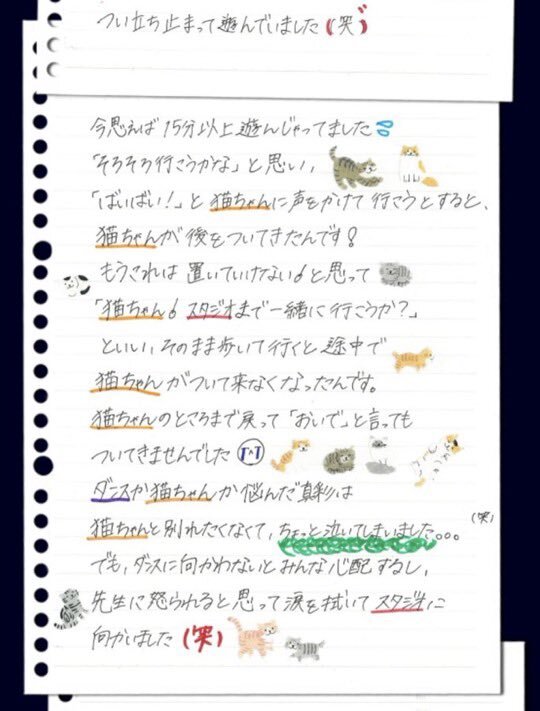 つい立ち止まって遊んでいました(笑)
今思えば15分以上遊んじゃってました
「そろそろ行こうかな」と思い,
「ばいばい!」と猫ちゃんに声をかけて行こうとすると、
猫ちゃんが後をついてきたんです!
もうこれは置いていけない!と思って
「猫ちゃん!スタジオまで一緒に行こうか?」
といい、そのまま歩いて行くと途中で
猫ちゃんがついて来なくなったんです。
猫ちゃんのところまで戻って「おいで」と言っても
ついてきませんでした
ダンスか猫ちゃんか悩んだ真彩は
猫ちゃんと別れたくなくて,ちょっと泣いてしまいました。。。(笑)
でも,ダンスに向かわないとみんな心配するし,
先生に怒られると思って涙を拭いてスタジオに
向かいました(笑)